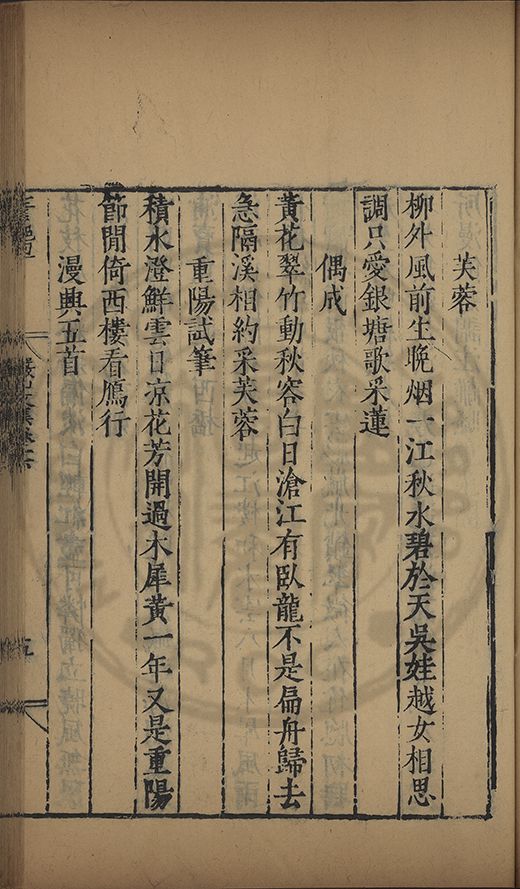 芙蓉
柳外風前生晚烟一江秋水碧於天吳娃越女相思
調只愛銀塘歌采蓮
偶成
黃花翠竹動秋容白日滄江有臥龍不是扁舟歸去
急隔溪相約采芙蓉
重陽試筆
積水澄鮮雲日凉花芳開過木犀黃一年又是重陽
節閒倚西樓看鴈行
漫興五首